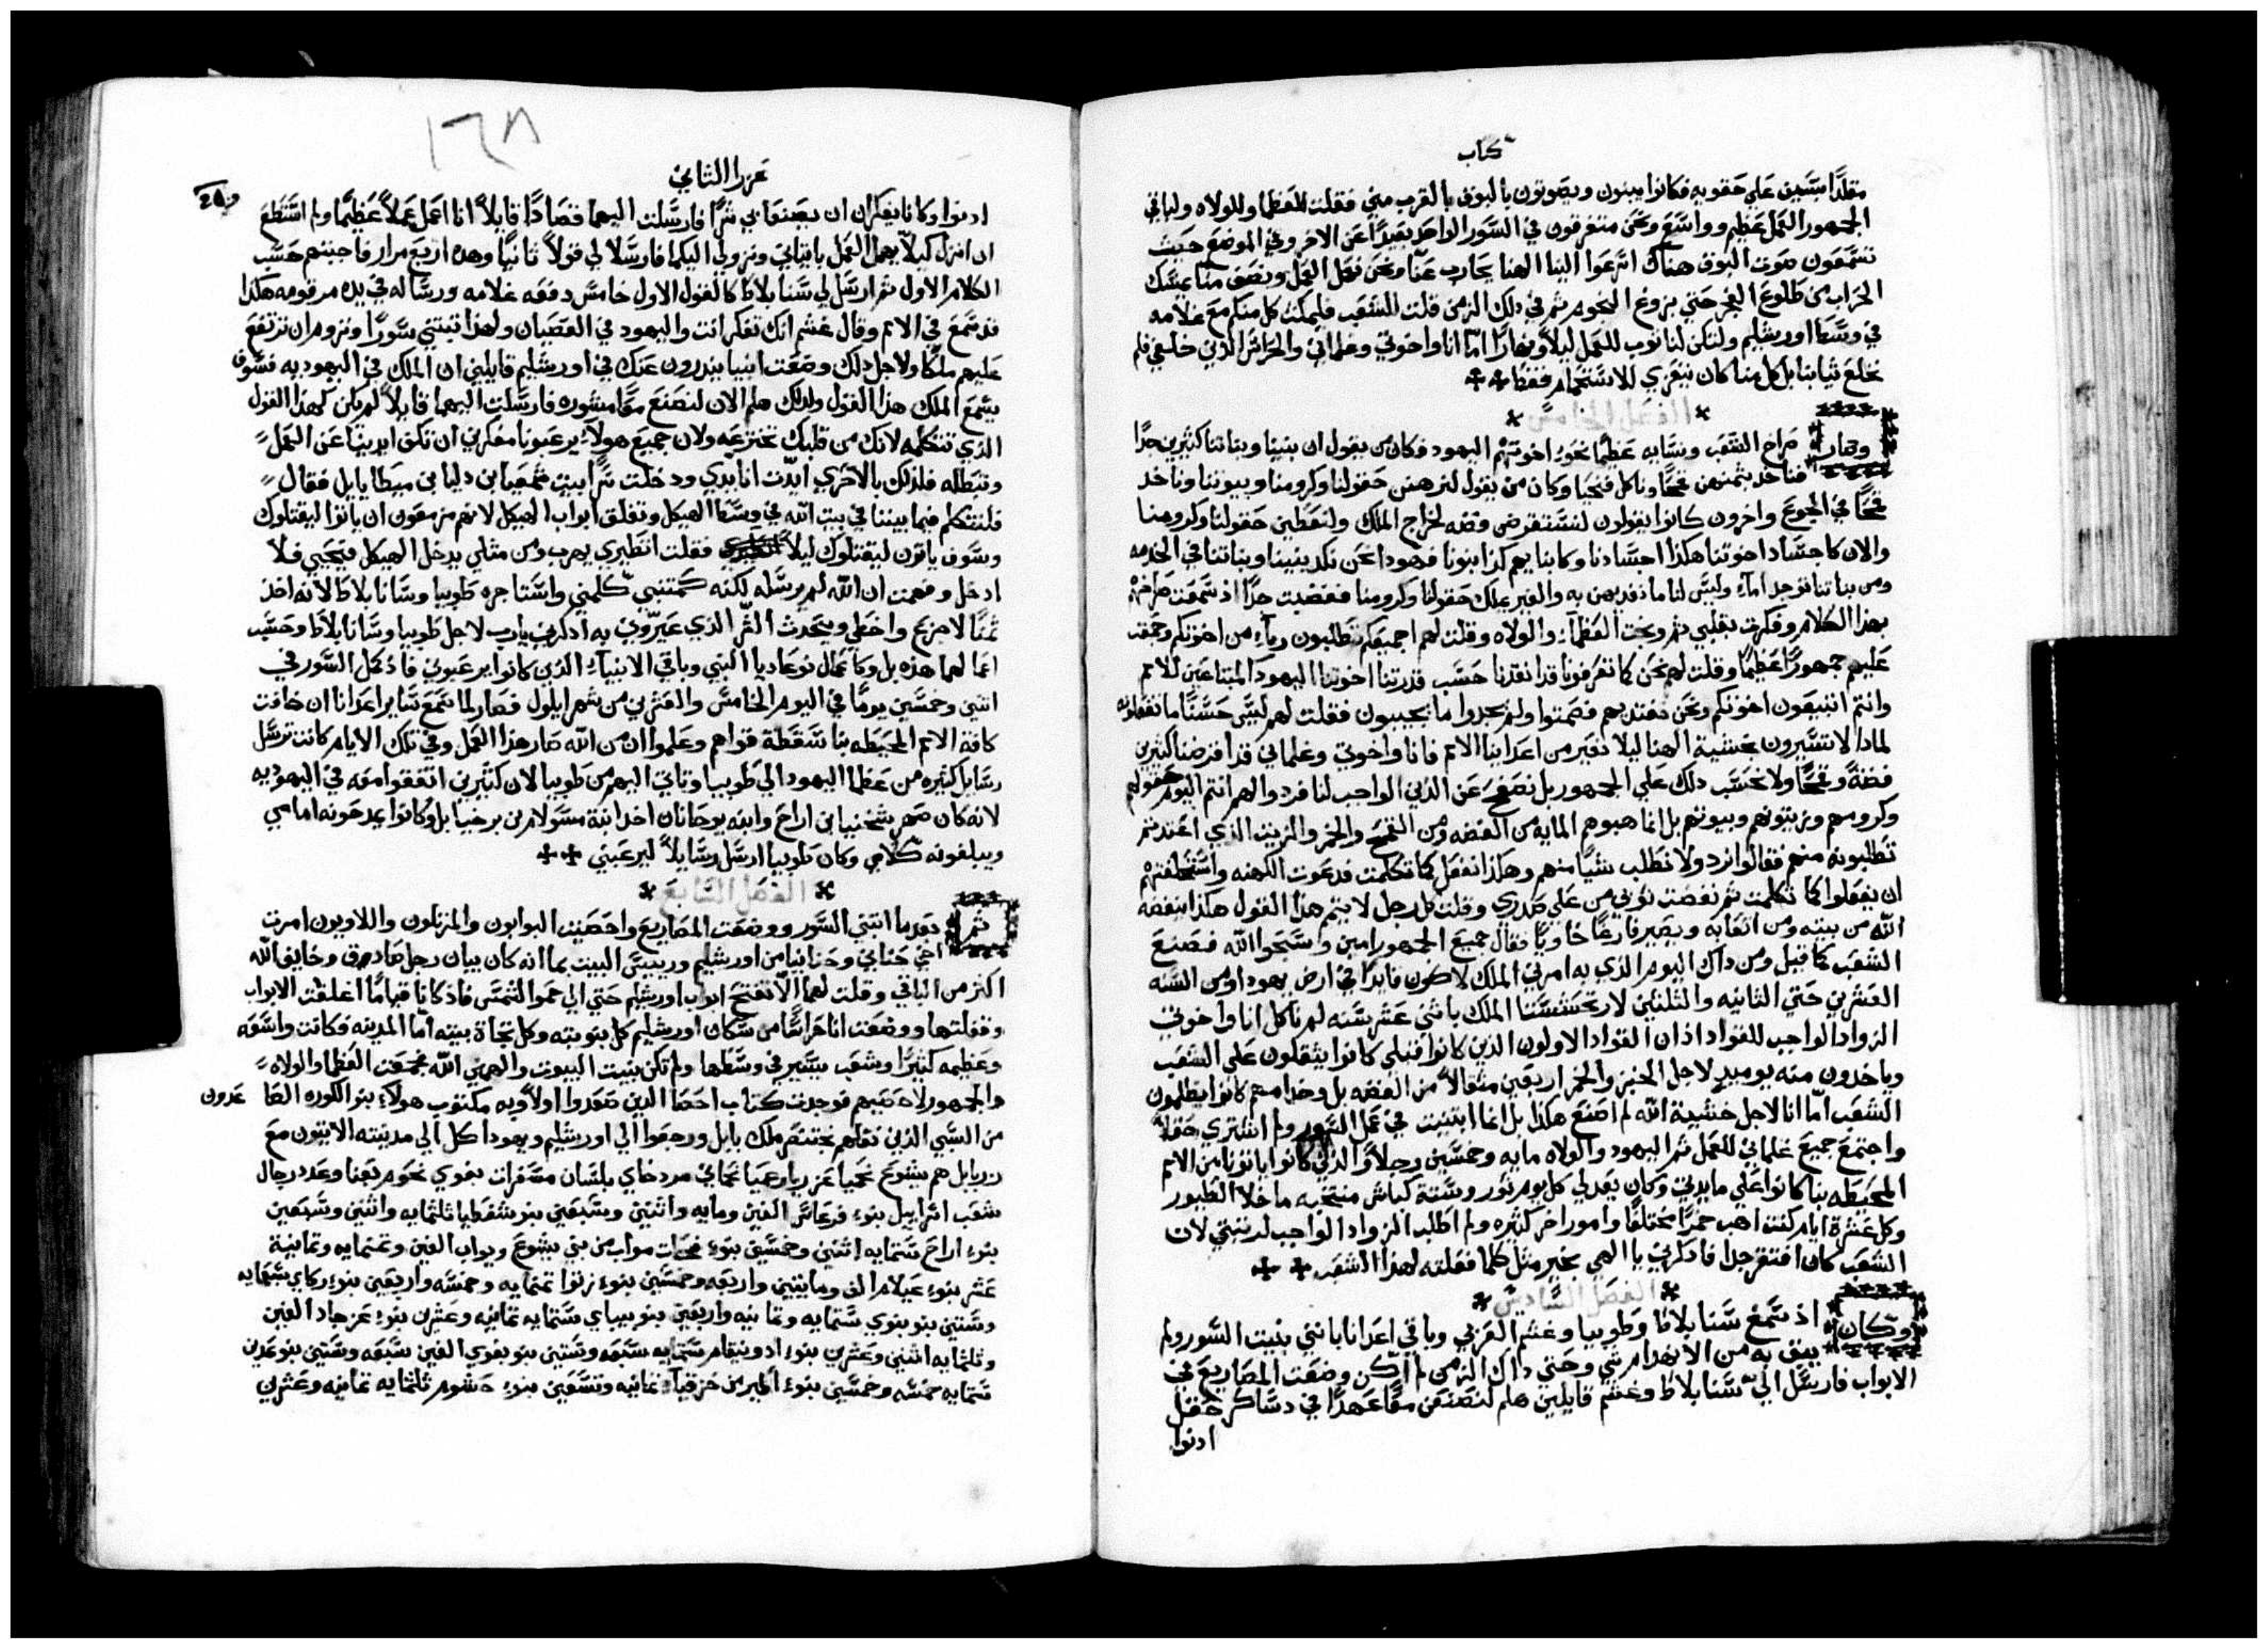 كتاب
متقلدًا بسيف علي حقويه فكانوا يبنون ويصوتون بالبوق بالقرب مني فقلت للعظما وللولاه ولباقي
الجمهور العمل عظيم وواسع ونحن متفرقون في السور الواحد بعيدًا عن الاخر وفي الموضع حيث
تسمعون صوت البوق هناك اسرعوا الينا الهنا يحارب عنّا ونحن نعمل العمل ونصف منّا يمسك
الحراب من طلوع الفجر حتي بزوغ النجوم ثم في دلك الزمن قلت للشعب فليمكث كل منكم مع غلامه
في وسط اورشليم ولتكن لنا نوب للعمل ليلاً ونهارًا امّا انا واخوتي وغلماني والحراس الذين خلفي فلم
نخلع ثيابنا بل كل منا كان يتعري للاستحمام فقط
الفصل الخامس
وصار صراخ الشعب ونسايه عظيمًا نحو اخوتهم اليهود فكان من يقول ان بنينا وبناتنا كثيرين جدًا
فناخد بثمنهن قمحًا وناكل فنحيا وكان من يقول لنرهنن حقولنا وكرومنا وبيوتنا وناخد
قمحًا في الجوع واخرون كانوا يقولون لنستقرض فضه لخراج الملك ولنعطين حقولنا وكرومنا
والان كاجساد اخوتنا هكذا اجسادنا وكابنايهم كذا بنونا فهودا نحن نكد بنينا وبناتنا في الخدمه
ومن بناتنا توجد امآء وليس لنا ما نفديهن به والغير يملك حقولنا وكرومنا فغضبت جدًا اذ سمعت صراخهم
بهذا الكلام وفكرت بقلبي ثم وبخت العظمآء والولاه وقلت لهم اجميعكم تطلبون ربآء من اخوتكم وجمعت
عليهم جمهورًا عظيمًا وقلت لهم نحن كما تعرفونا قد انقدنا حسب قدرتنا اخوتنا اليهود المبتاعين للامم
وانتم اتبيعون اخوتكم ونحن نفتديهم فصمتوا ولم يجدوا ما يجيبون فقلت لهم ليس حسنًا ما تفعلونه
لمادا لا تسيرون بخشية الهنا ليلا نعير من اعداينا الامم فانا واخوتي وغلماني قد اقرضنا كثيرين
فضةً وقمحًا ولا نحسب دلك علي الجمهور بل نصفح عن الدين الواجب لنا فردوا لهم انتم اليوم حقولهم
وكرومهم وزيتونهم وبيوتهم بل انما هبوهم المايه من الفضه ومن القمح والخمر والزيت الذي اعتدتم
تطلبونه منهم فقالوا نرد ولا نطلب شيًا منهم وهكذا نفعل كما تكلمت فدعوت الكهنه واستحلفتهم
ان يفعلوا كما تكلمت ثم نفضت ثوبي من علي صدري وقلت كل رجل لا يتم هذا القول هكذا ينفضه
الله من بيته ومن اتعابه ويصير فارغًا خاويًا فقال جميع الجمهور امين وسبحوا الله فصنع
الشعب كما قيل ومن داك اليوم الذي به امرني الملك لاكون قايدًا في ارض يهودا من السنه
العشرين حتي الثانيه والثلثين لارتحششتا الملك باثني عشر سنه لم ناكل انا واخوتي
الزواد الواجب للقواد اذ ان القواد الاولون الذين كانوا قبلي كانوا يثقلون علي الشعب
وياخدون منه يوميدٍ لاجل الخبز والخمر اربعين مثقالاً من الفضه بل وخدامهم كانوا يظلمون
الشعب امّا انا لاجل خشية الله لم اصنع هكذا بل انما ابتنيت في عمل السور ولم اشتري حقلاً
واجتمع جميع غلماني للعمل ثم اليهود والولاه مايه وخمسين رجلاً والذين كانوا ياتونا من الامم
المحيطه بنا كانوا علي مايدتي وكان يعد لي كل يوم ثور وستة كباش منتخبه ما خلا الطيور
وكل عشرة ايام كنت اهب خمرًا مختلفًا وامور اخر كثيره ولم اطلب الزواد الواجب لرتبتي لان
الشعب كان افتقر جدا فادكرني يا الهي بخير مثل كلما فعلته لهذا الشعب
الفصل السادس
وكان اذ سمع سنابلاط وطوبيا وغشم العربي وباقي اعدانا باني بنيت السور ولم
يبق به من الانهدام شي وحتي داك الزمن لم اكن وضعت المصاريع في
الابواب فارسل الي سنابلاط وغشم قايلين هلم لنصنعن معًا عهدًا في دساكر حقل
ادنوا
١٦٨
عزرا الثاني
ادنوا وكانا يفكران ان يصنعا بي شرًا فارسلت اليهما قصادًا قايلاً انا اعمل عملاً عظيمًا ولم استطع
ان انزل كيلاً يهمل العمل باتياني ونزولي اليكما فارسلا لي قولاً ثانيًا وهده اربع مرار فاجبتهم حسب
الكلام الاول ثم ارسل لي سنابلاط كالقول الاول خامس دفعه غلامه ورساله في يده مرقومه هكذا
قد سمع في الامم وقال غشم انك تفكر انت واليهود في العصيان ولهذا تبتني سورًا وتروم ان ترتفع
عليهم ملكًا ولاجل دلك وضعت انبيا ينذرون عنك في اورشليم قايلين ان الملك في اليهوديه فسوف
يسمع الملك هذا القول ولدلك هلم الان لنصنع معًا مشوره فارسلت اليهما قايلاً لم يكن كهذا القول
الذي تتكلمه لانك من قلبك تخترعه ولان جميع هولآء يرعبونا مفكرين ان تكف ايدينا عن العمل
ونبطله فلذلك بالاحري ايّدت انا يدي ودخلت سرًا بيت شمعيا بن دليا بن ميطابايل فقال
فلنتكلم فيما بيننا في بيت الله في وسط الهيكل ونغلق ابواب الهيكل لانهم مزمعون ان ياتوا ليقتلوك
وسوف ياتون ليقتلوك ليلاً فقلت انظيري يهرب ومن مثلي يدخل الهيكل فيحيي فلا
ادخل وفهمت ان الله لم يرسله لكنه كمتنبي كلمني واستاجره طوبيا وسانابلاط لانه اخذ
ثمنًا لاجزع واخطي ويتحدث الشر الذي عيروني به اذكرني يارب لاجل طوبيا وسانابلاط وحسب
اعمالهما هذه بل وكاعمال نوعاديا النبي وباقي الانبيآء الذين كانوا يرعبوني فاذ كمل السور في
اثنين وخمسين يومًا في اليوم الخامس والعشرين من شهر ايلول فصار لما سمع ساير اعدانا ان خافت
كافة الامم المحيطه بنا سقطة قواهم وعلموا ان من الله صار هذا العمل وفي تلك الايام كانت ترسل
رسايل كثيره من عظما اليهود الي طوبيا وتاتي اليهم من طوبيا لان كثيرين اتفقوا معه في اليهوديه
لانه كان صهر شخنيا بن اراح وابنه يوحانان اخد ابنة مسولام بن برخيا بل وكانوا يمدحونه امامي
ويبلغونه كلامي وكان طوبيا ارسل رسايلاً ليرعبني
الفصل السابع
ثم بعدما انتني السور ووضعت المصاريع واحصيت البوابون والمرتلون واللاويون امرت
اخي حناني وحنانيا من اورشليم ورييس البيت بما انه كان بيان رجل صادق وخايف الله
اكثر من الباقي وقلت لهما الا تفتح ابواب اورشليم حتي الي حمو الشمس فاذ كانا قيامًا اغلقت الابواب
وقفلتها ووضعت انا حراسًا من سكان اورشليم كل بنوبته وكل تجاة بيته امّا المدينه فكانت واسعه
وعظيمه كثيرًا وشعب يسير في وسطها ولم تكن بنيت البيوت والهمني الله فجمعت العظما والولاه
والجمهور لاحصيهم فوجدت كتاب احصا الذين صعدوا اولاً وبه مكتوب هولآء بنو الكوره الصاعدون
من السبي الذين نقلهم بختنصر ملك بابل ورجعوا الي اورشليم ويهودا كل الي مدينته الاتيون مع
زربابل هم يشوع نحميا عزريا رعميا نحماني مردخاي بلسان مسفرات بغوي نحوم بعنا وعدد رجال
شعب اسراييل بنوء فرعاش الفين ومايه واثنين وسبعين بنو شفطيا ثلثمايه واثنين وسبعين
بنوء اراح ستمايه اثنين وخمسين بنوء فحات مواب من بني يشوع ويواب الفين وثمنمايه وثمانية
عشر بنوء عيلام الف ومايتين واربعه وخمسين بنوء زتوا ثمنمايه وخمسه واربعين بنوء زكاي سبعمايه
وستين بنو بنوي ستمايه وثمانيه واربعين بنو بيباي ستمايه ثمانيه وعشرين بنوء عزجاد الفين
وثلثمايه اثنين وعشرين بنوء ادونيقام ستمايه سبعه وستين بنو بغوي الفين سبعه وستين بنو عدين
ستمايه خمسه وخمسين بنوء اطير بن حزقيآء ثمانيه وتسعين بنوء حشوم ثلثمايه ثمانيه وعشرين